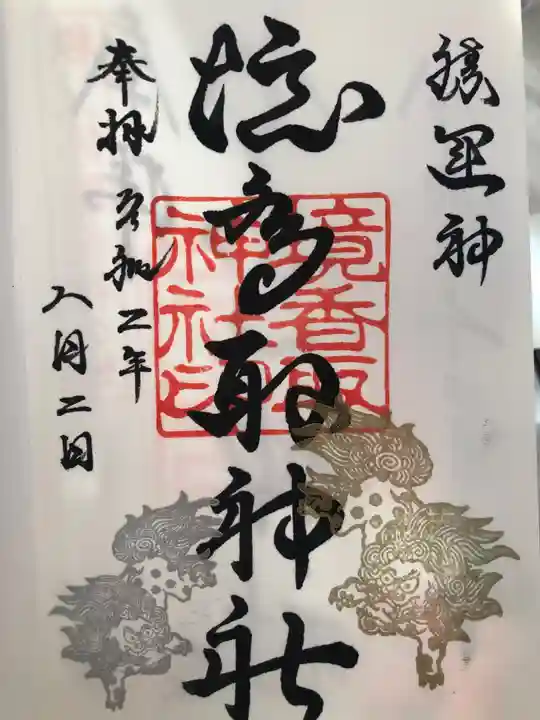 勝運神
境香取神社
奉拝 令和二年
八月二日
境香取
神社印